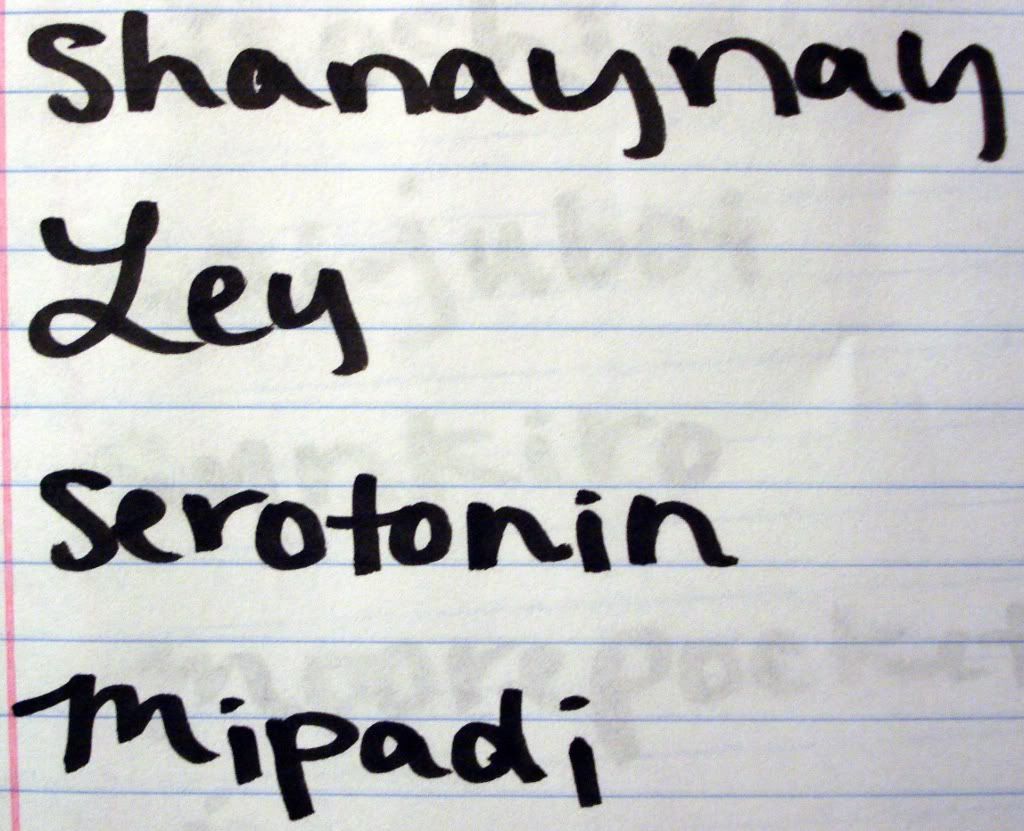 Shanaynay
Ley
Serotonin
Mipadi